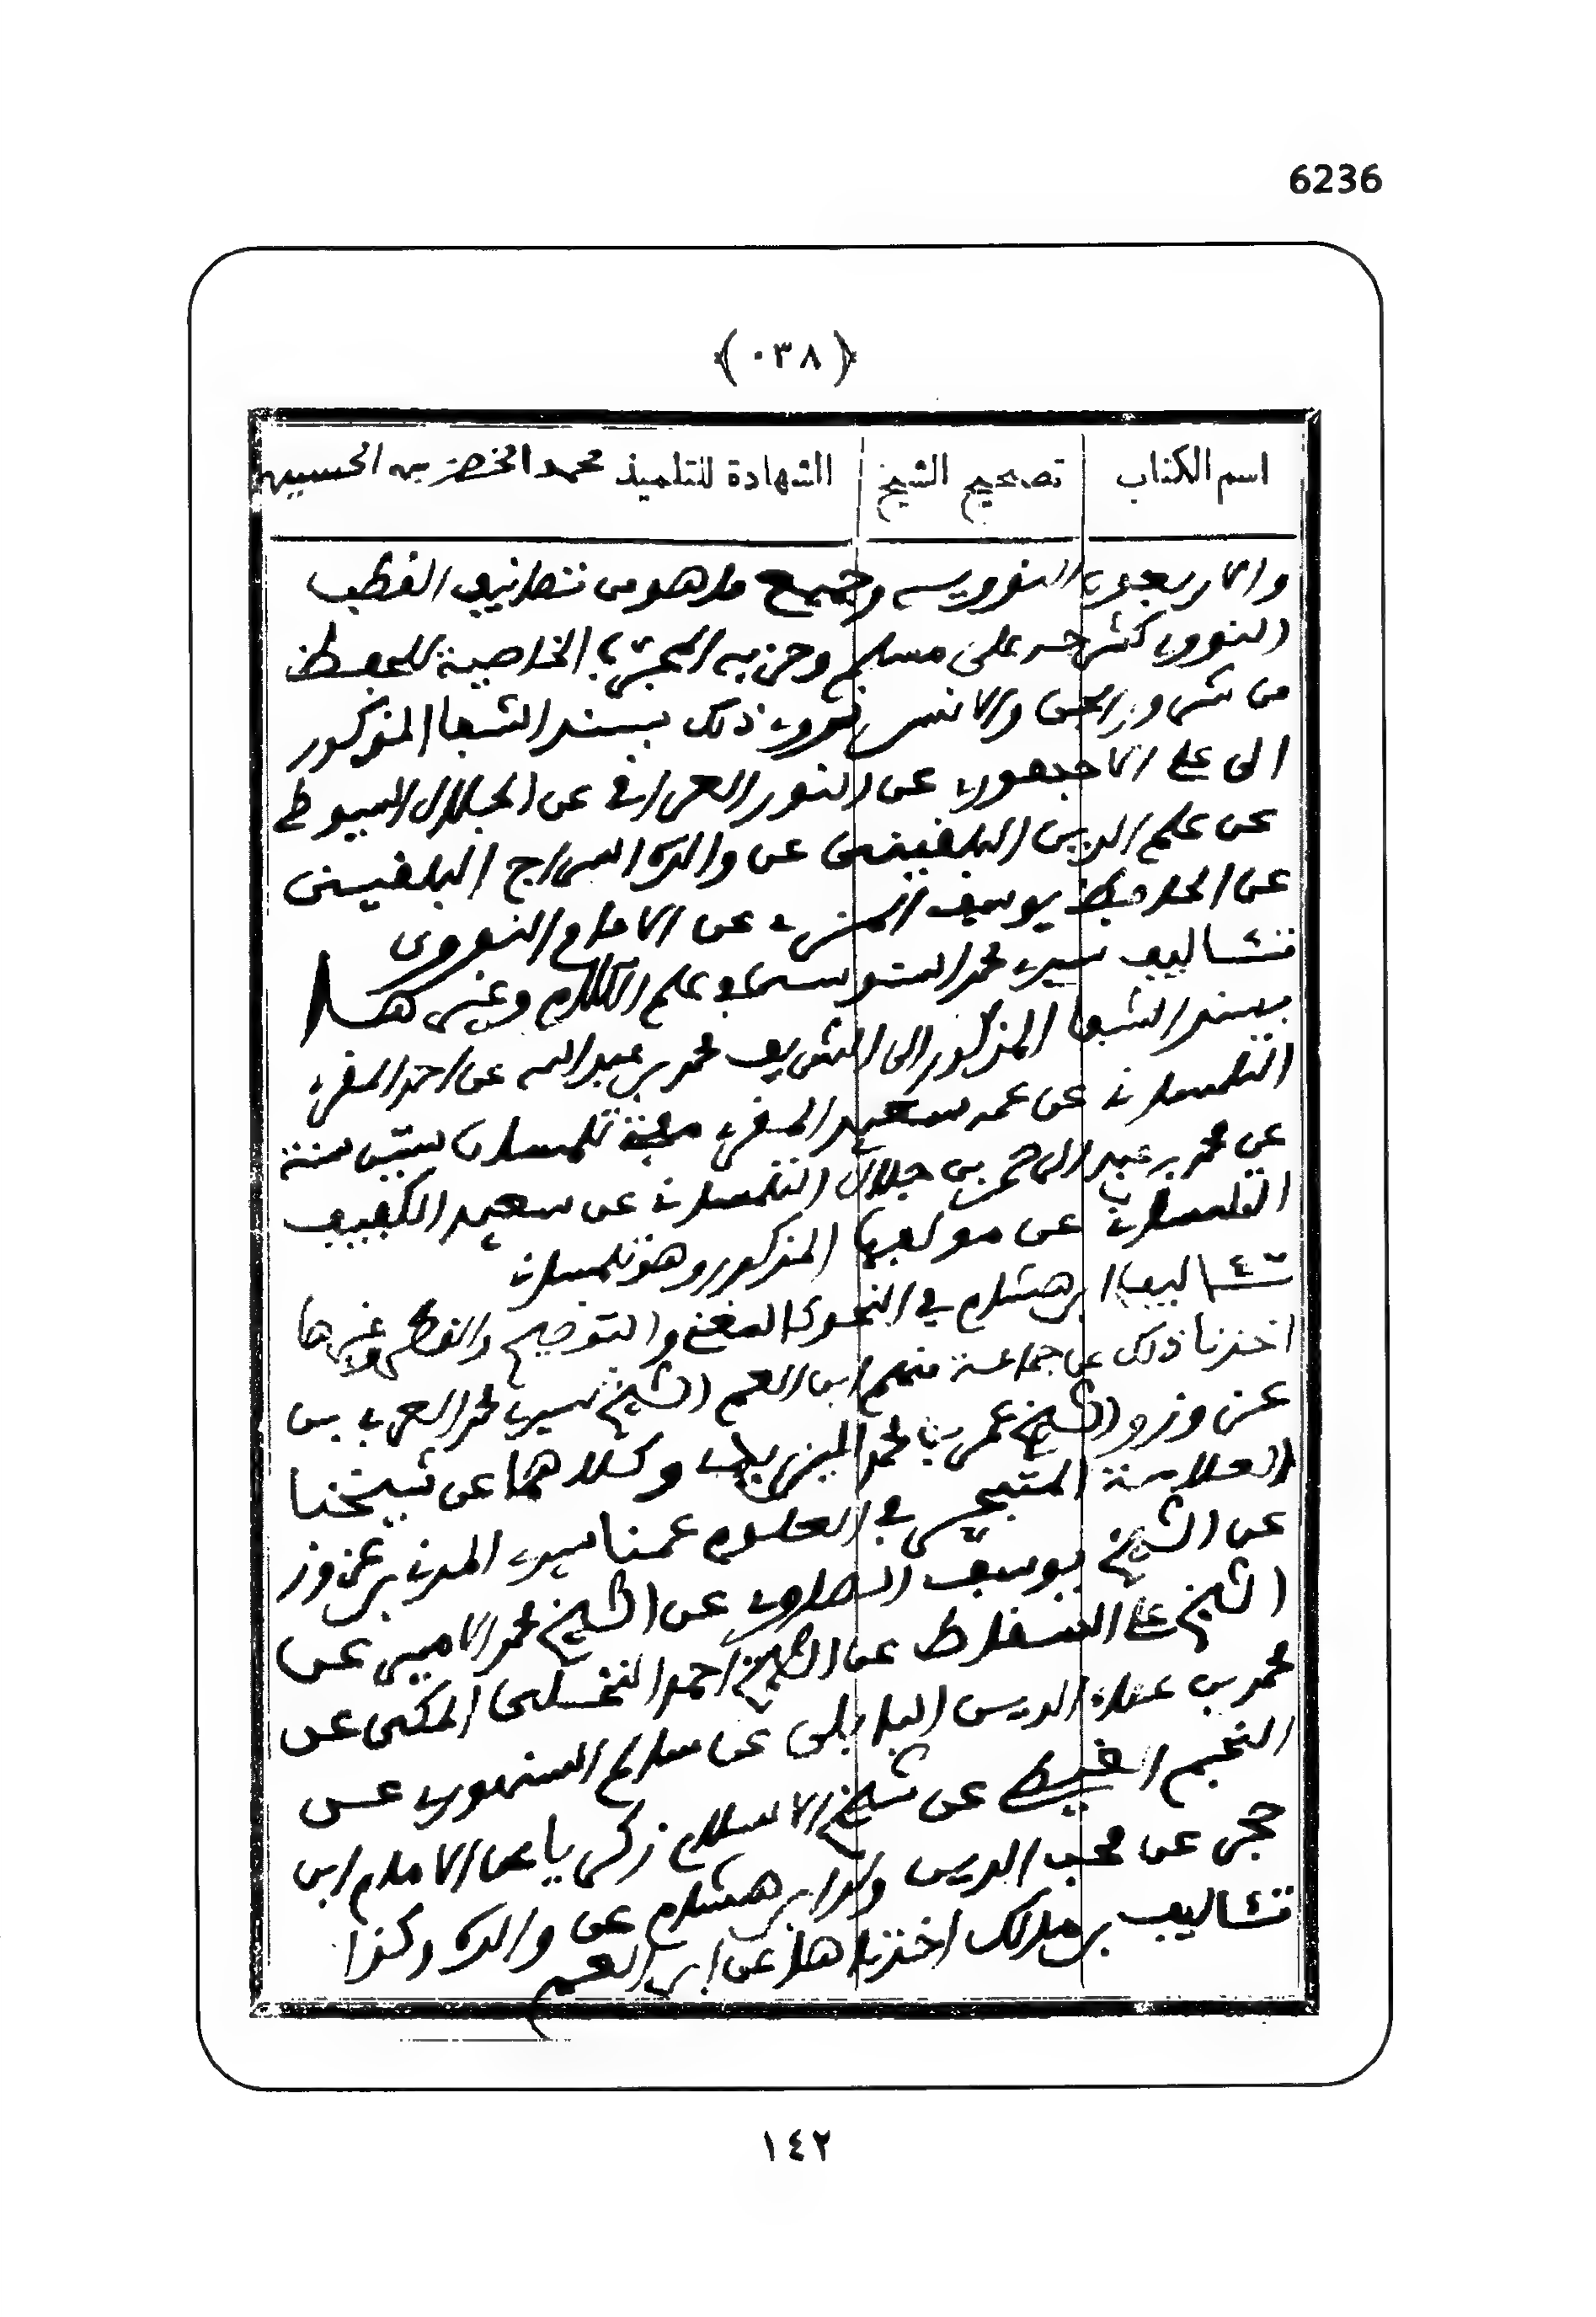 6236
(٠٣٨)
اسم الكتاب تصحيح الشيخ الشهادة للتلميذ محمد الخضر بن الحسين
والاربعون النووية وجميع ما هو من تصانيف القطب
النووي كشرحه على مسلم وحزبه المجرب الخاصية للحفظ
من شرور الجن والانس نروي ذلك بسند الشبا المذكور
الى علي الاجهوري عن النور القرافي عن الجلال السيوطي
عن علم الدين البلقيني عن والده السراج البلقيني
عن الحافظ يوسف المزي عن الامام النووي
تئاليف سيدي محمد السنوسي في علم الكلام وغيرها
بسند الشبا المذكور الى الشريف محمد بن عبد الله عن احمد المقري
التلمساني عن عمه سعيد المقري مفتي تلمسان ستين سنة
عن محمد بن عبد الرحمن بن جلال التلمساني عن سعيد الكفيف
التلمساني عن مولفها المذكور وهو تلمساني
تئاليف ابن هشام في النحو كالمغني والتوضيح والقطر وغيرها
اخذنا ذلك عن جماعة منهم ابن العم الشيخ سيدي محمد العربي بن
عزوز و الشيخ عمر بن محمد الميزي وكلاهما عن شيخنا
العلامة المتبحر في العلوم عمنا سيدي المدني بن عزوز
عن الشيخ يوسف الصاوي عن الشيخ محمد الامير عن
الشيخ علي السقاط عن الشيخ احمد النخلي المكي عن
محمد بن علاء الدين البابلي عن سالم السنهوري عن
النجم الغيطي عن شيخ الاسلام زكريا عن الامام ابن
حجر عن محب الدين ولد ابن هشام عن والده وكذا
تئاليف بن مالك اخذناها عن ابن العم
١٤٢